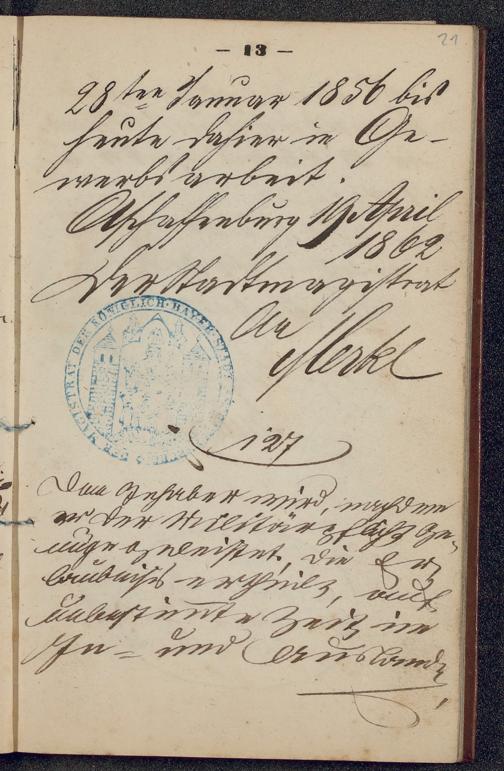 21
— 13 —
28ten Januar 1856 bis
heute dahier in Ge-
werbsarbeit.
Aschaffenburg 19 April
1862
Der Stadtmagistrat
Merkel
DER MAGISTRAT DER KÖNIGLICH BAYER. STADT
127
Dem Inhaber wird, nachdem
er der Militärpflicht Ge-
nüge geleistet, die Er-
laubniß ertheilt, auf
unbestimmte Zeit im
In- und Auslande,